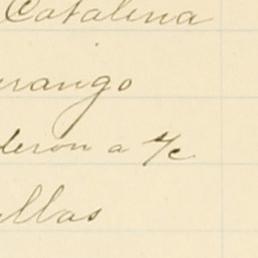 Catalina
urango
deron a %c
llas